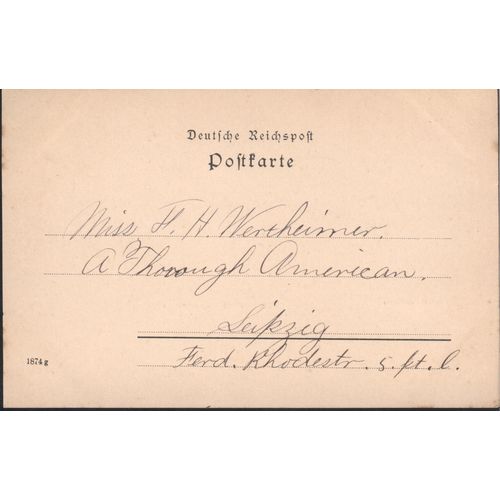 Deutsche Reichspost
Postkarte
Miss F. H. Wertheimer.
A Thorough American.
Leipzig
Ferd. Rhodestr. 5. pt. l.
1874 g